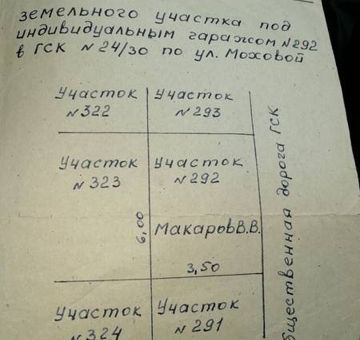 земельного участка под
индивидуальным гаражом №292
в ГСК №24/30 по ул. Моховой
Участок
№322
Участок
№293
Участок
№323
Участок
№292
Макаров В.В.
6,00
3,50
Участок
№324
Участок
№291
бщественная дорога ГСК